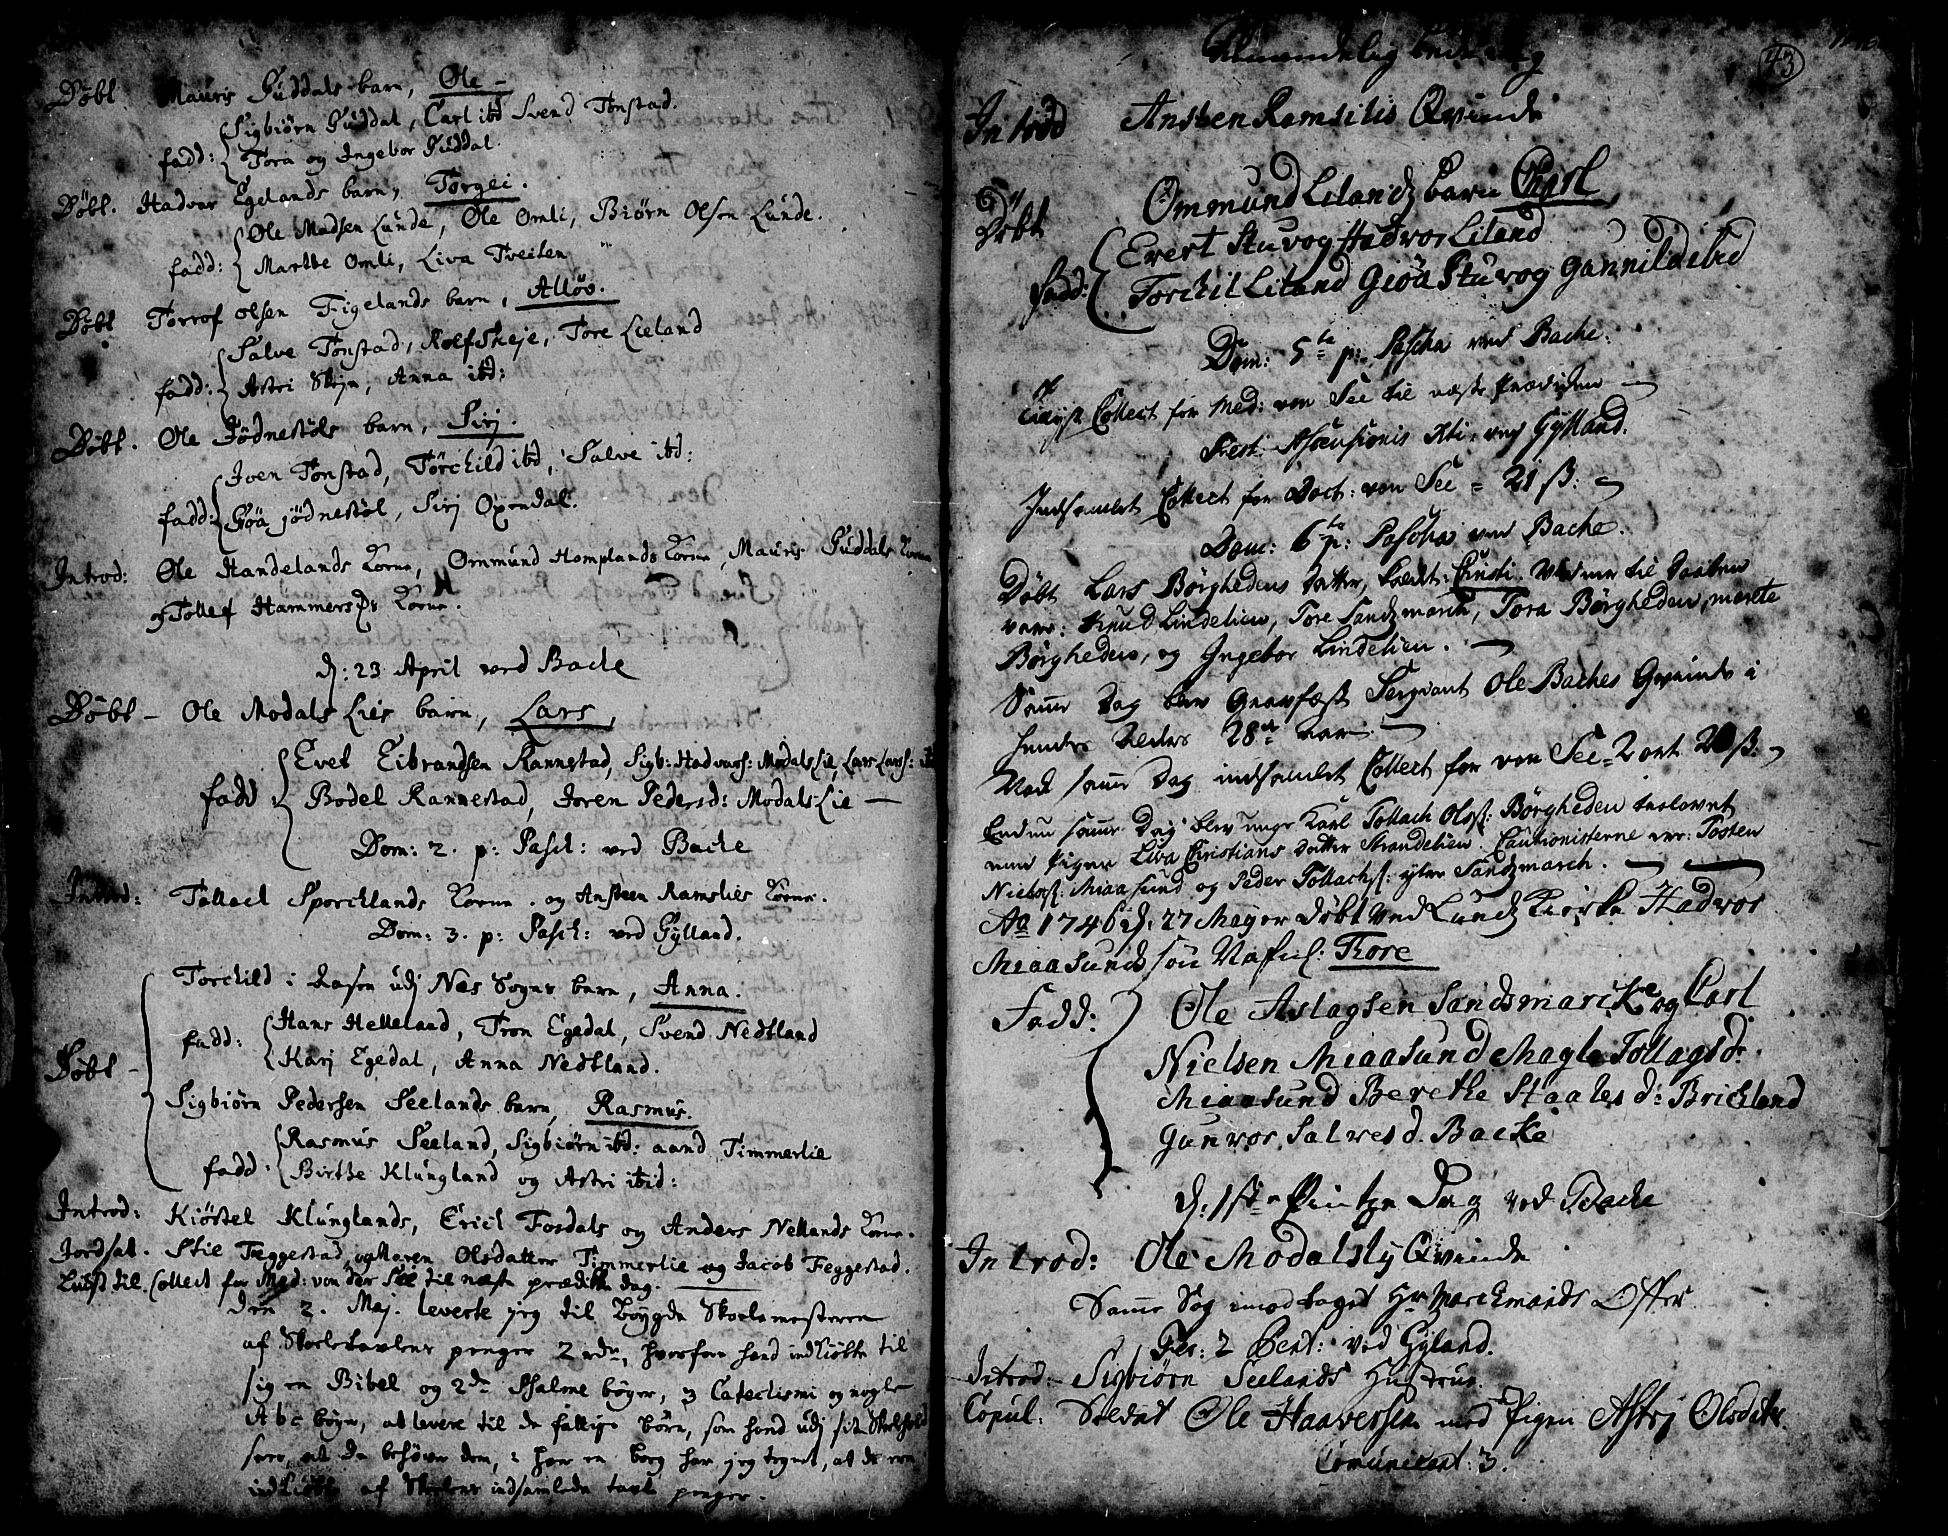 Döbt Mauris Guddals barn, Ole -
fadd: Sigbiörn Guddal, Carl ibd Svend Tonstad.
Tora og Ingebor Guddal.
Döbt. Hadvar Egelands barn, Torgei.
fadd: Ole Madsen Lunde, Ole Omli, Biörn Olsen Lunde.
Marthe Omli, Liva Tveiten
Döbt Torrof Olsen Figelands barn, Allöv.
fadd: Salve Tonstad, Rolf Skeje, Tore Lieland
Astri Skeje, Anna ibd:
Döbt. Ole Jödnestöls barn, Sirj.
fadd: Iven Tonstad, Törchild ibd, Salve ibd:
Göa jödnestöl, Sirj Oxendal.
Introd: Ole Handelands Kone, Ommund Homplands Kone, Mauris Guddals Kone
og Tollef Hammers Kone.
d: 23 April ved Bache
Döbt - Ole Modals Lies barn, Lars,
fadd: Evet Eibrandsen Rannestad, Sigb: Hadvars: Modalslie, Lars Lars:
Bodel Rannestad, Joren Pedersd: Modalslie —
Dom: 2. p: Pasch: ved Bache
Introd: Tallach Sporchlands Kone. og Ansteen Ramslies Kone.
Dom: 3. p: Pasch: ved Gylland.
Döbt - Torchild i Aasen udj Nes Sogns barn, Anna.
fadd: Hans Helleland, Tron Egedal, Svend Nedtland
Karj Egedal, Anna Nedtland.
Sigbiörn Pedersen Seelands barn, Rasmus.
fadd: Rasmus Seeland, Sigbiörn ibd: aand Timmerlie
Birthe Klungland og Astri ibid:
Introd: Kiöstel Klunglands, Erich Fosdals og Anders Netlands Kone.
Jordsat. Stie Feggestad, og Maren Olsdatter Timmerlie og Jacob Feggestad.
Lyst til Collect for Med: von der See til næste prædike dag.
den 2. Maj. leverte jeg til Böygde Skolemesteren
af Skoletavlens penger 2 rdr, hvorfor hand indkiöbte til
sig en Bibel og 2de Psalme böger, 3 Catechismi og nogle
Abc böger, at levere til de fattige börn, som hand udj sit Skolehold
seer, at de behöver dem, i hver en bog har jeg tegnet, at de ere
indkiöbte af Skolens indsamlede tavle penger.
43
Almindelig Bededag
Introd Ansten Ramslies Qvinde
Döbt Ommund Lilands barn Charl
Fadd: Evert Stuvog Hadvor Liland
Torchil Liland Giöa Stuvog Gunnild ibd
Dom: 5te p: Pascha ved Bache.
Lyst Collect for Med: von See til næste Prædiken —
Fest: Ascensionis Xti, ved Gylland.
Indsamlet Collect for Doct: von See = 21 ß:
Dom: 6te p: Pascha ved Bache.
Döbt Lars Börghedens datter, kaldt: Christi. Vidner til Daaben
vare: Knud Lindelien, Tore Sandsmarch, Tora Börgheden, Marete
Börgheden, og Ingebor Lindelien. —
Samme Dag blev Gravfæst Sergeant Ole Baches Qvinde i
hendes Alders 28de aar. —
Ved samme Dag indsamlet Collect for von See = 2 ort 20 ß:
Endnu samme Dag blev unge Karl Tollach Olss: Börgheden trolovet
med Pigen Liva Christians datter Strandelien. Cautionisterne var: Tosten
Nielss: Miaasund og Peder Tollachs: ytre Sandsmarch. —
Ao 1746 d: 27 Mayer Döbt ved Lunds Kierke Hadvor
Miaasunds sön Nafnl: Tore
Fadd: Ole Aslagsen Sandsmarcke og Carl
Nielsen Miaasund Magle Tollagsd:
Miaasund Berethe Staalesd: Brichland
Gunvor Salvesd. Backe
d: 1ste Pintze Dag ved Bache
Introd: Ole Modalsly Qvinde
Samme Dag imodtaget Hr Marchmands Offer
Fer: 2 Pent: ved Gyland.
Introd: Sigbiörn Seelands Hustrue.
Copul: Soldat Ole Haaversen med Pigen Astrj Olsdatter.
Comunicant: 3.